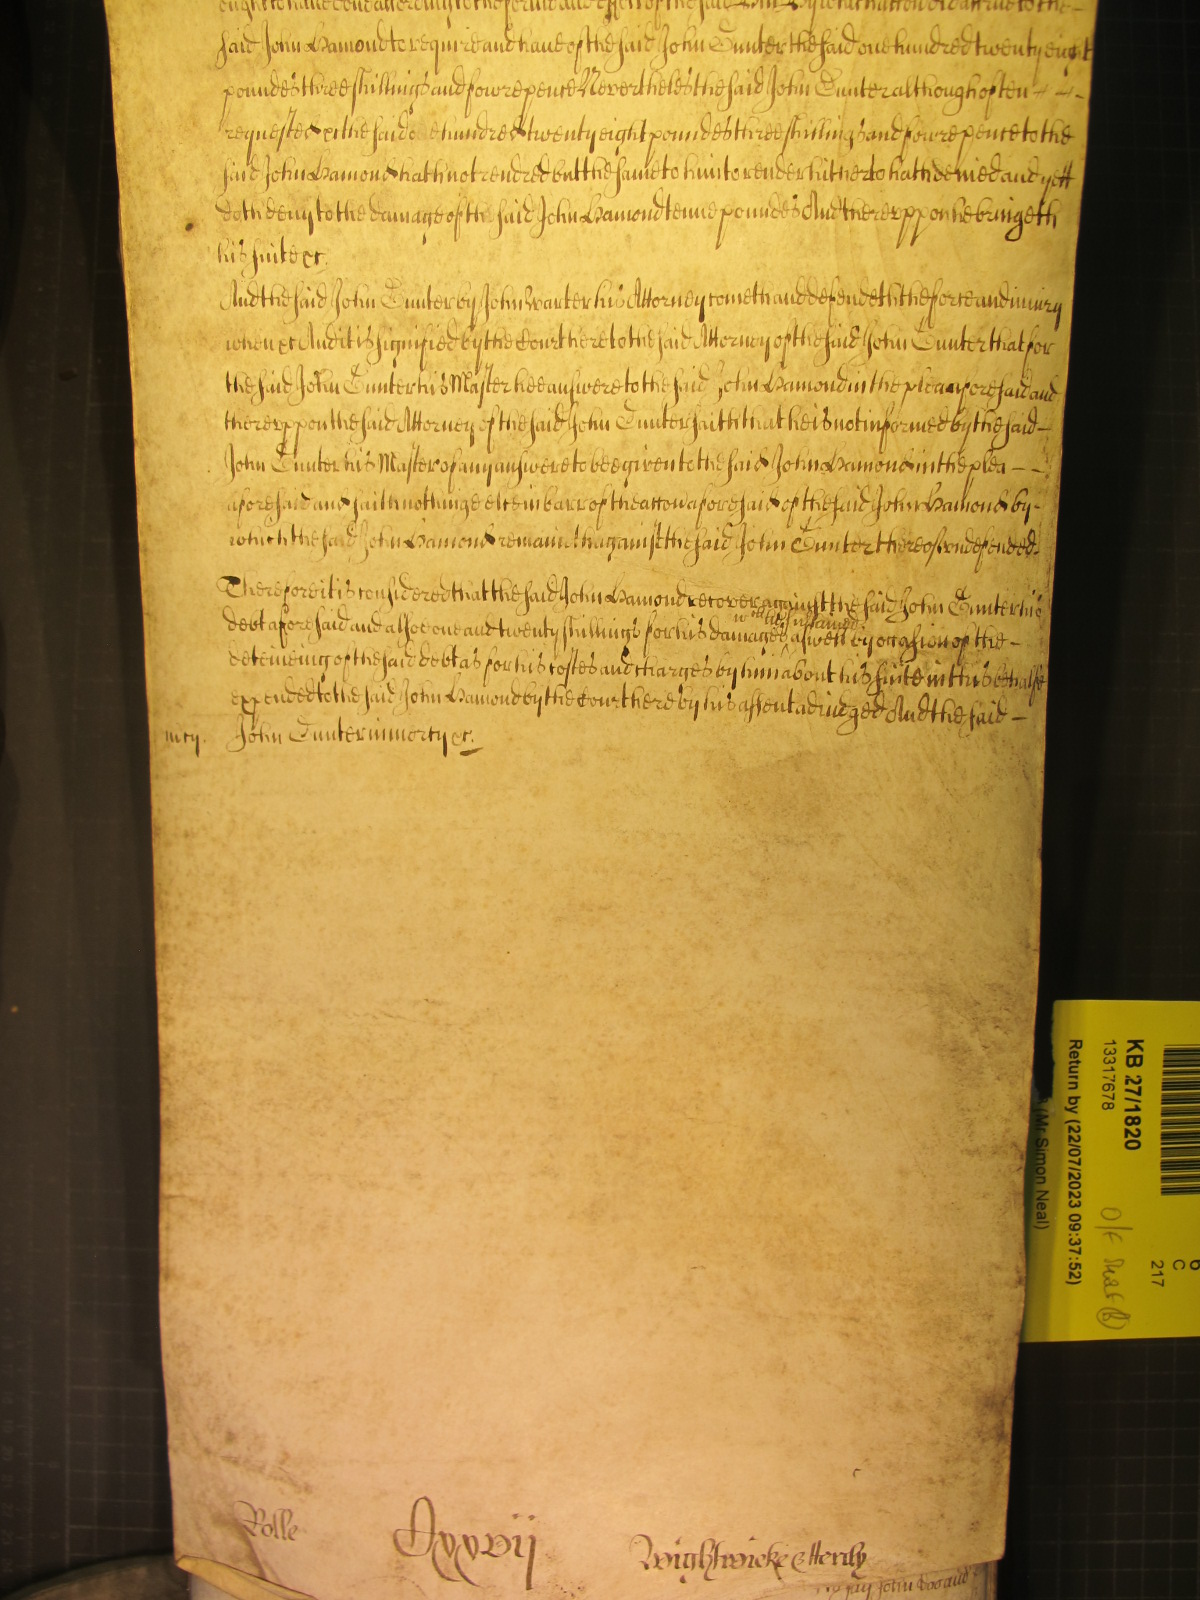 ought to have done according to the forme and effect of the said Bill Whereby an accion did accrue to the
said John Hamond to require and have of the said John Gunter the said one hundred twenty eight
poundes three shillings and fowre pence Neverthelesse the said John Gunter although often
requested &c the said one hundred twenty eight poundes three shillings and fowre pence to the
said John Hamond hath not rendred but the same to him to render hitherto hath denied and yett
doth deny to the damage of the said John Hamond tenne poundes And thereuppon he bringeth
his suite &c.
And the said John Gunter by John Warter his Attorney cometh and defendeth the force and iniury
when &c And it is signified by the Court here to the said Attorney of the said John Gunter that for
the said John Gunter his Master hee answere to the said John Hamond in the plea aforesaid and
thereuppon the said Attorney of the said John Gunter saith that he is not informed by the said
John Gunter his Master of any answere to bee given to the said John Hamond in the plea
aforesaid and saith nothinge else in barr of the accon aforesaid of the said John Hamond by
which the said John Hamond remaineth against the said John Gunter thereof vndefended.
Therefore it is considered that the said John Hamond recover against the said John Gunter his
debt aforesaid and alsoe one and twenty shillings for his damages which he hath susteined aswell by occasion of the
deteineing of the said debt as for his costes and charges by him about his suite in this behalfe
expended to the said John Hamond by the Court here by his assent adiudged And the said
mcy. John Gunter in mercy &c.
Rolle Dxxvij Wightwicke &
John
KB 27/1820
13317678
Return by (22/07/2023 09:37:52)
(Mr Simon Neal)
6
C
217